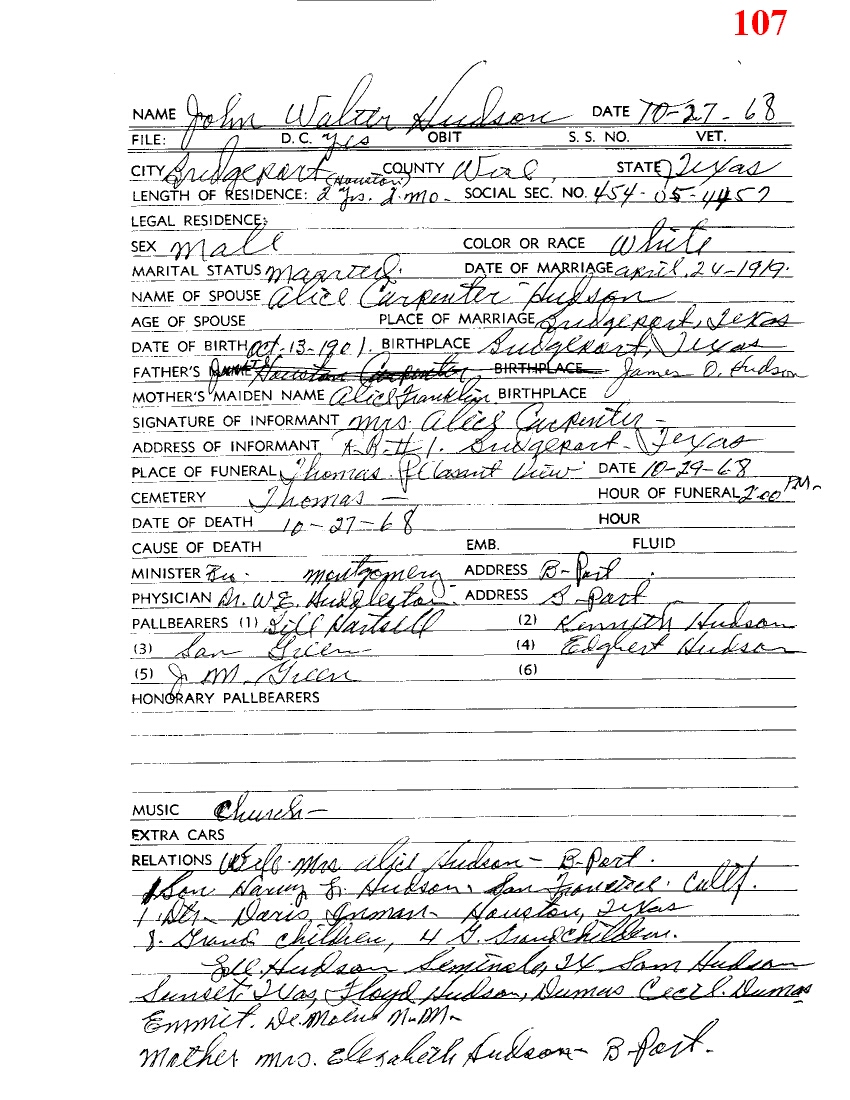 107
NAME John Walter Hudson DATE 10-27-68
FILE: D.C. Yes OBIT S. S. NO. VET.
CITY Bridgeport (Houston) COUNTY Wise STATE Texas
LENGTH OF RESIDENCE: 2 Yrs. 2 mo- SOCIAL SEC. NO. 454-05-4457
LEGAL RESIDENCE:
SEX Male COLOR OR RACE White
MARITAL STATUS Married. DATE OF MARRIAGE April, 24-1919.
NAME OF SPOUSE Alice Carpenter Hudson
AGE OF SPOUSE PLACE OF MARRIAGE Bridgeport, Texas
DATE OF BIRTH Oct. 13-1901. BIRTHPLACE Bridgeport, Texas
FATHER'S Houston Carpenter BIRTHPLACE James O. Hudson
MOTHER'S MAIDEN NAME Alice Franklin BIRTHPLACE
SIGNATURE OF INFORMANT Mrs. Alice Carpenter -
ADDRESS OF INFORMANT 1. Bridgeport- Texas
PLACE OF FUNERAL Thomas. Pleasant View DATE 10-29-68
CEMETERY Thomas - HOUR OF FUNERAL 2:00 PM-
DATE OF DEATH 10-27-68 HOUR
CAUSE OF DEATH EMB. FLUID
MINISTER Montgomery ADDRESS B-Port.
PHYSICIAN Dr. W.E. Huddleston- ADDRESS B-Port
PALLBEARERS (1) Bill Hartsell (2) Kenneth Hudson
(3) San Green (4) Edghert Hudson
(5) J. M. Green (6)
HONORARY PALLBEARERS
MUSIC Church-
EXTRA CARS
RELATIONS Wife- Mrs Alice Hudson- B-Port.
1 Son Harvy Hudson. San Francisco. Calif.
1. Dtr- Doris, Inman- Houston, Texas
8. Grand Children, 4 G. Grandchildren.
Hudson Seminole, TX Sam Hudson
Sunset Texas, Floyd Hudson, Dumas Cecil. Dumas
Emmit. N.M-
Mother Mrs. Elezabeth Hudson- B-Port-